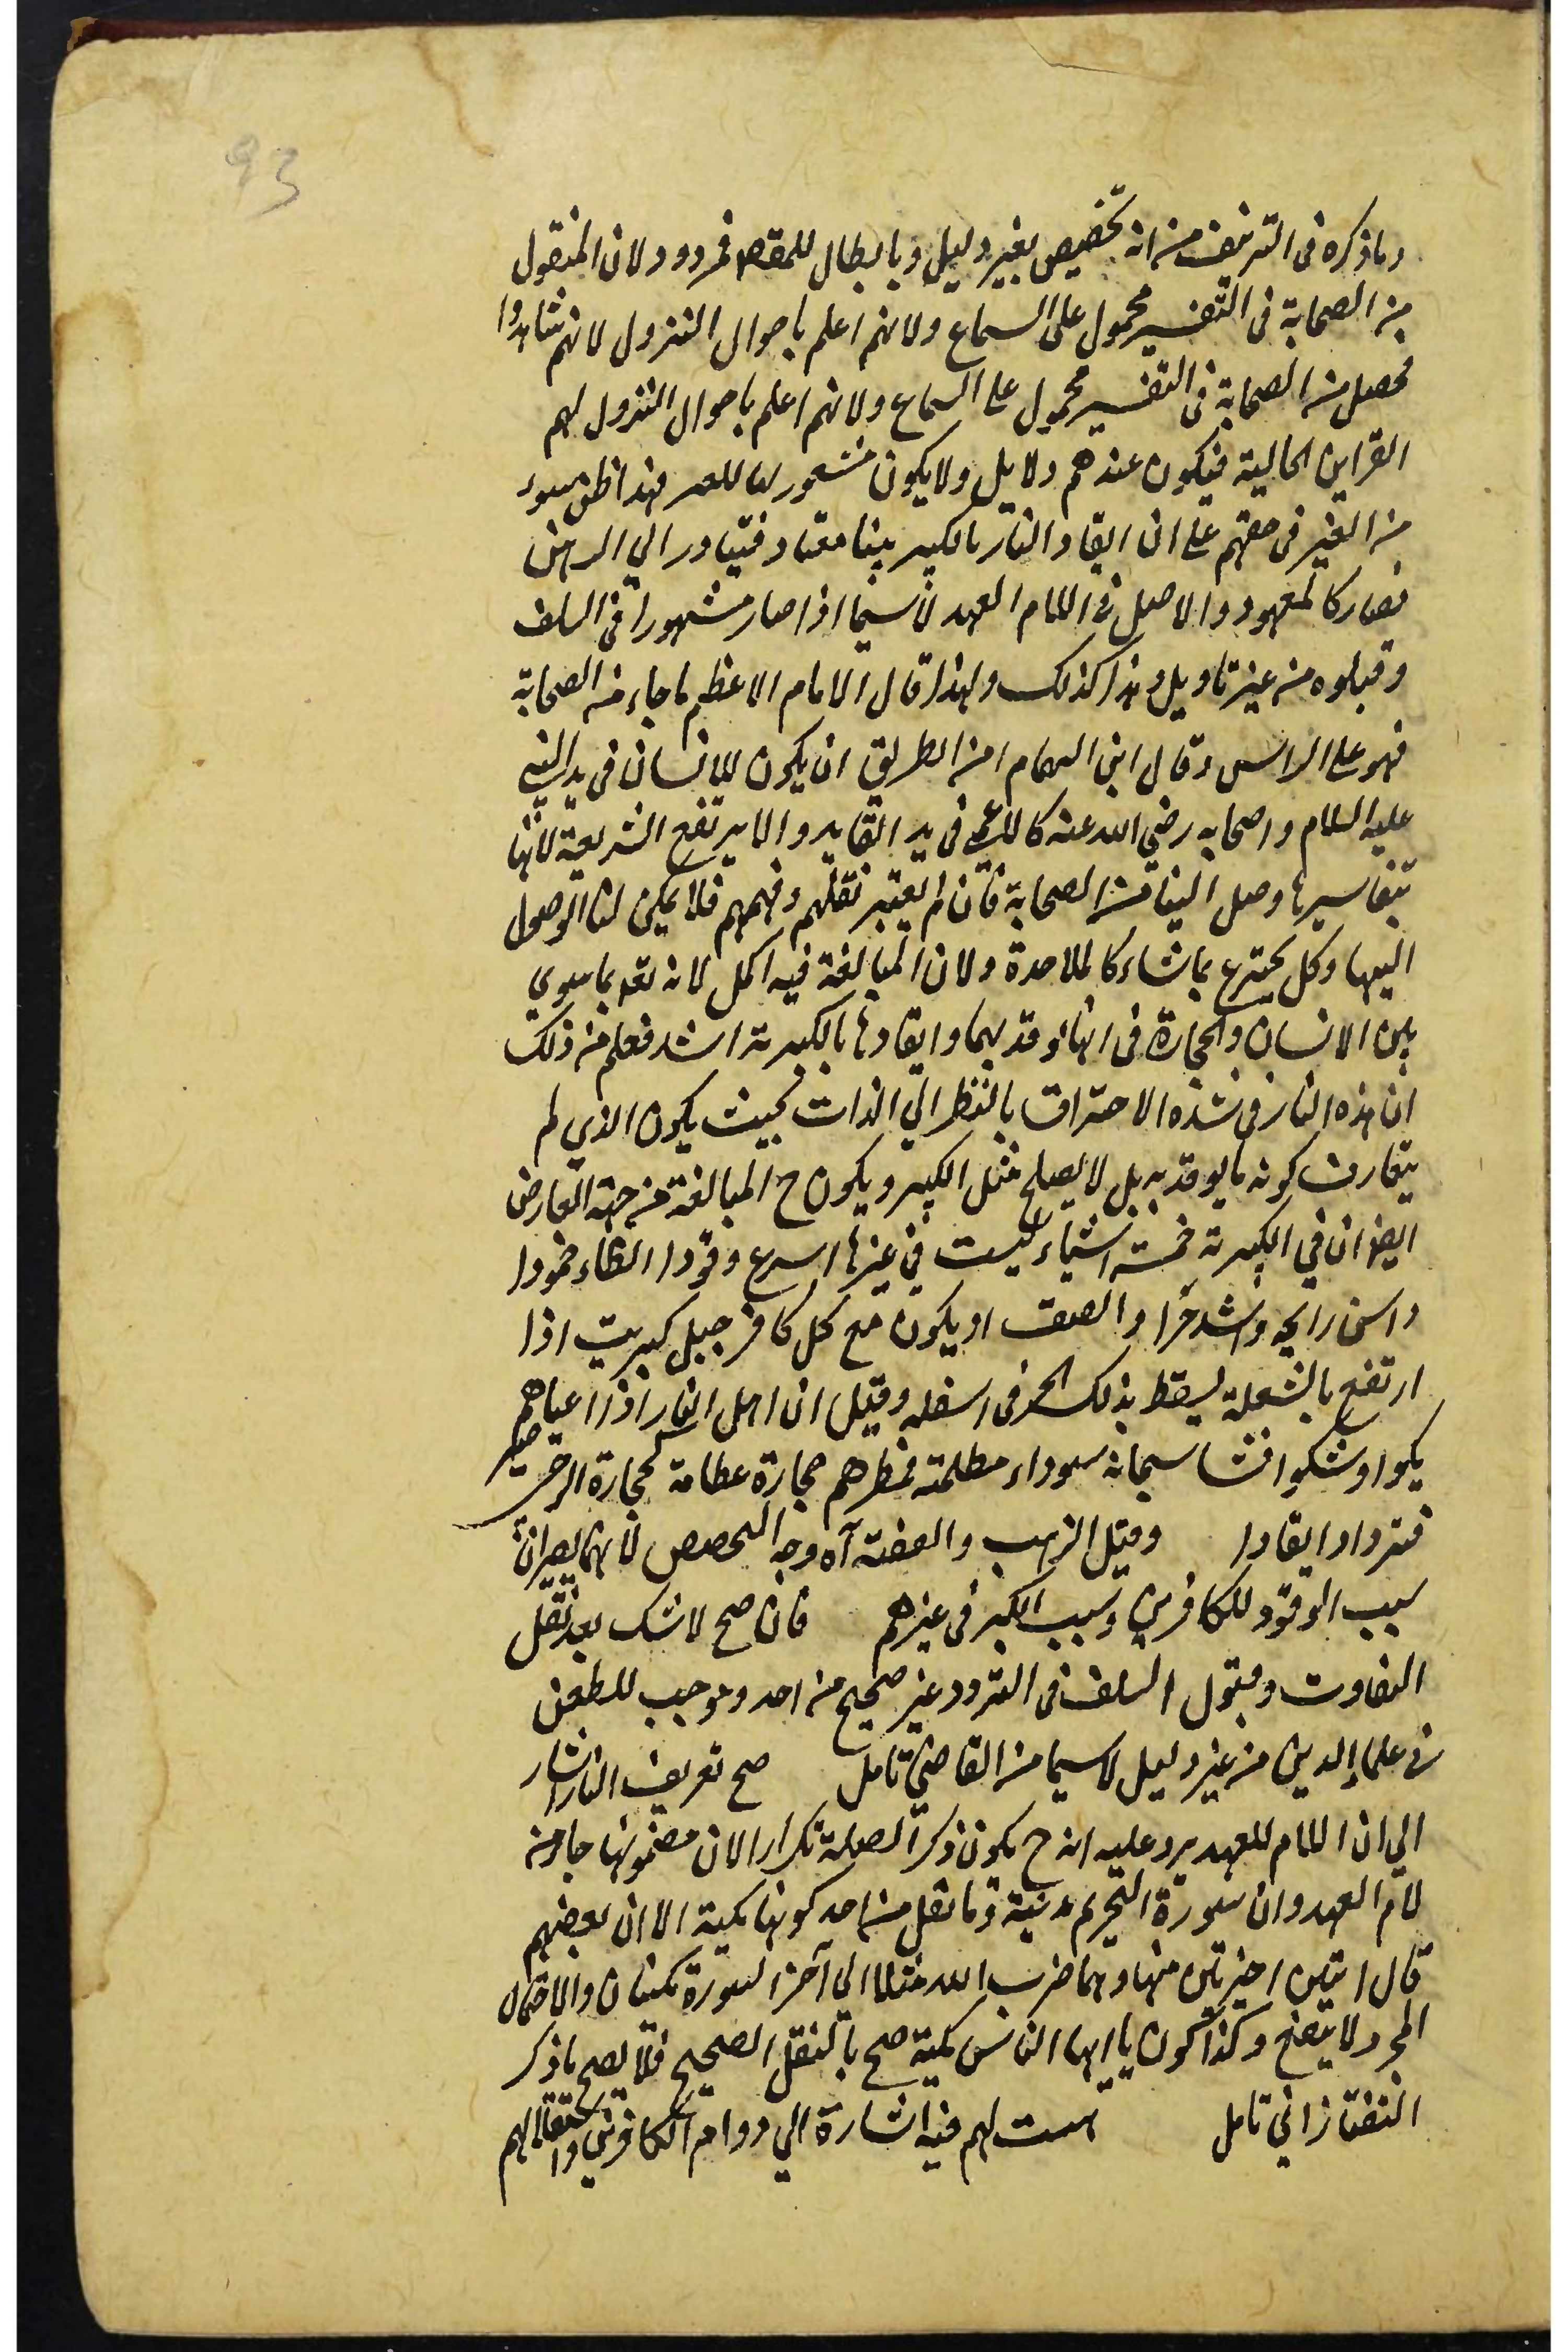 93
وما ذكره فى التزييف من انه تخصيص بغير دليل وبابطال للمقصد فمردود لان المنقول
من الصحابة فى التفسير محمول على السماع ولانهم اعلم باحوال التنزول لانهم شاهدوا
فحصل من الصحابة فى التفسير محمول على السماع ولانهم اعلم باحوال التنزول لهم
القراين الحالية فيكون عندهم دلايل ولا يكون فهذا ظن سوء
من الغير فى حقهم على ان ايقاد النار بالكبريت بينا معتاد فيتبادر الي الذهن
فصار كالمعهود والاصل فى اللام العهد لا سيما اذا صار مشهورا فى السلف
وقبلوه من غير تاويل وهذا كذلك ولهذا قال الامام الاعظم ما جاء من الصحابة
فهو على الراس وقال ابن الهمام امن الطريق ان يكون للانسان فى يد النبي
عليه السلام واصحابه رضي الله عنه كالاعمى فى يد القايد والا يرتفع الشريعة لانها
بتفاسيرها وصل الينا من الصحابة فان لم يعتبر نقلهم وفهمهم فلا يمكن لنا الوصول
اليها وكل يخترع بما شاء كالملاحدة ولان المبالغة فيه اكمل لانه تعالى سوي
بين الانسان والحجارة فى انها اوقد بهما وايقادها بالكبريت اشد فعلم من ذلك
ان هذه النار فى شدة الاحتراق بالنظر الي الذات بحيث يكون الذي لم
يتعارف كونه ما يوقد به بل لا يصلح مثل الكبريت ويكون ح المبالغة من جهة العارض
ايضا ان في الكبريت خمسة اشياء ليست في غيرها اسرع وقودا ابطاء خمودا
وانتن رايحه واشد حرا والصق او يكون مع كل كافر جبل كبريت اذا
ارتفع بالشعلة يسقط بذلك الحر فى اسفله وقيل ان اهل النار اذا اعياهم
يكوا وشكوا فنشا سحابة سوداء مظلمة فمطرهم حجارة عظامة كحجارة الرحى
فتزداد ايقادا وقيل الذهب والفضة آه وجه التخصص لانهما يصيران
سبب الوقود للكافرين وسبب الكبر فى غيرهم فان صح لا شك بعد نقل
التفاوت وقبول السلف فى التردد غير صحيح من احد وموجب للطعن
فى علماء الدين من غير دليل لا سيما من القاضي تامل صح تعريف النار اشار
الي ان اللام للعهد يرد عليه انه ح يكون ذكر الصلة تكرارا لان مضمونها جاء من
لام العهد وان سورة التحريم مدنية وما نقل من احد كونها مكية الا ان بعضهم
قال ايتين اخيرتين منها وهما ضرب الله مثلا الي آخر السورة مكيتان والاحتمال
المجرد لا ينفع وكذا كون يا ايها الناس مكية صح بالنقل الصحيح فلا يصح ما ذكر
التفتازاني تامل لهم فيه اشارة الي دوام الكافرين